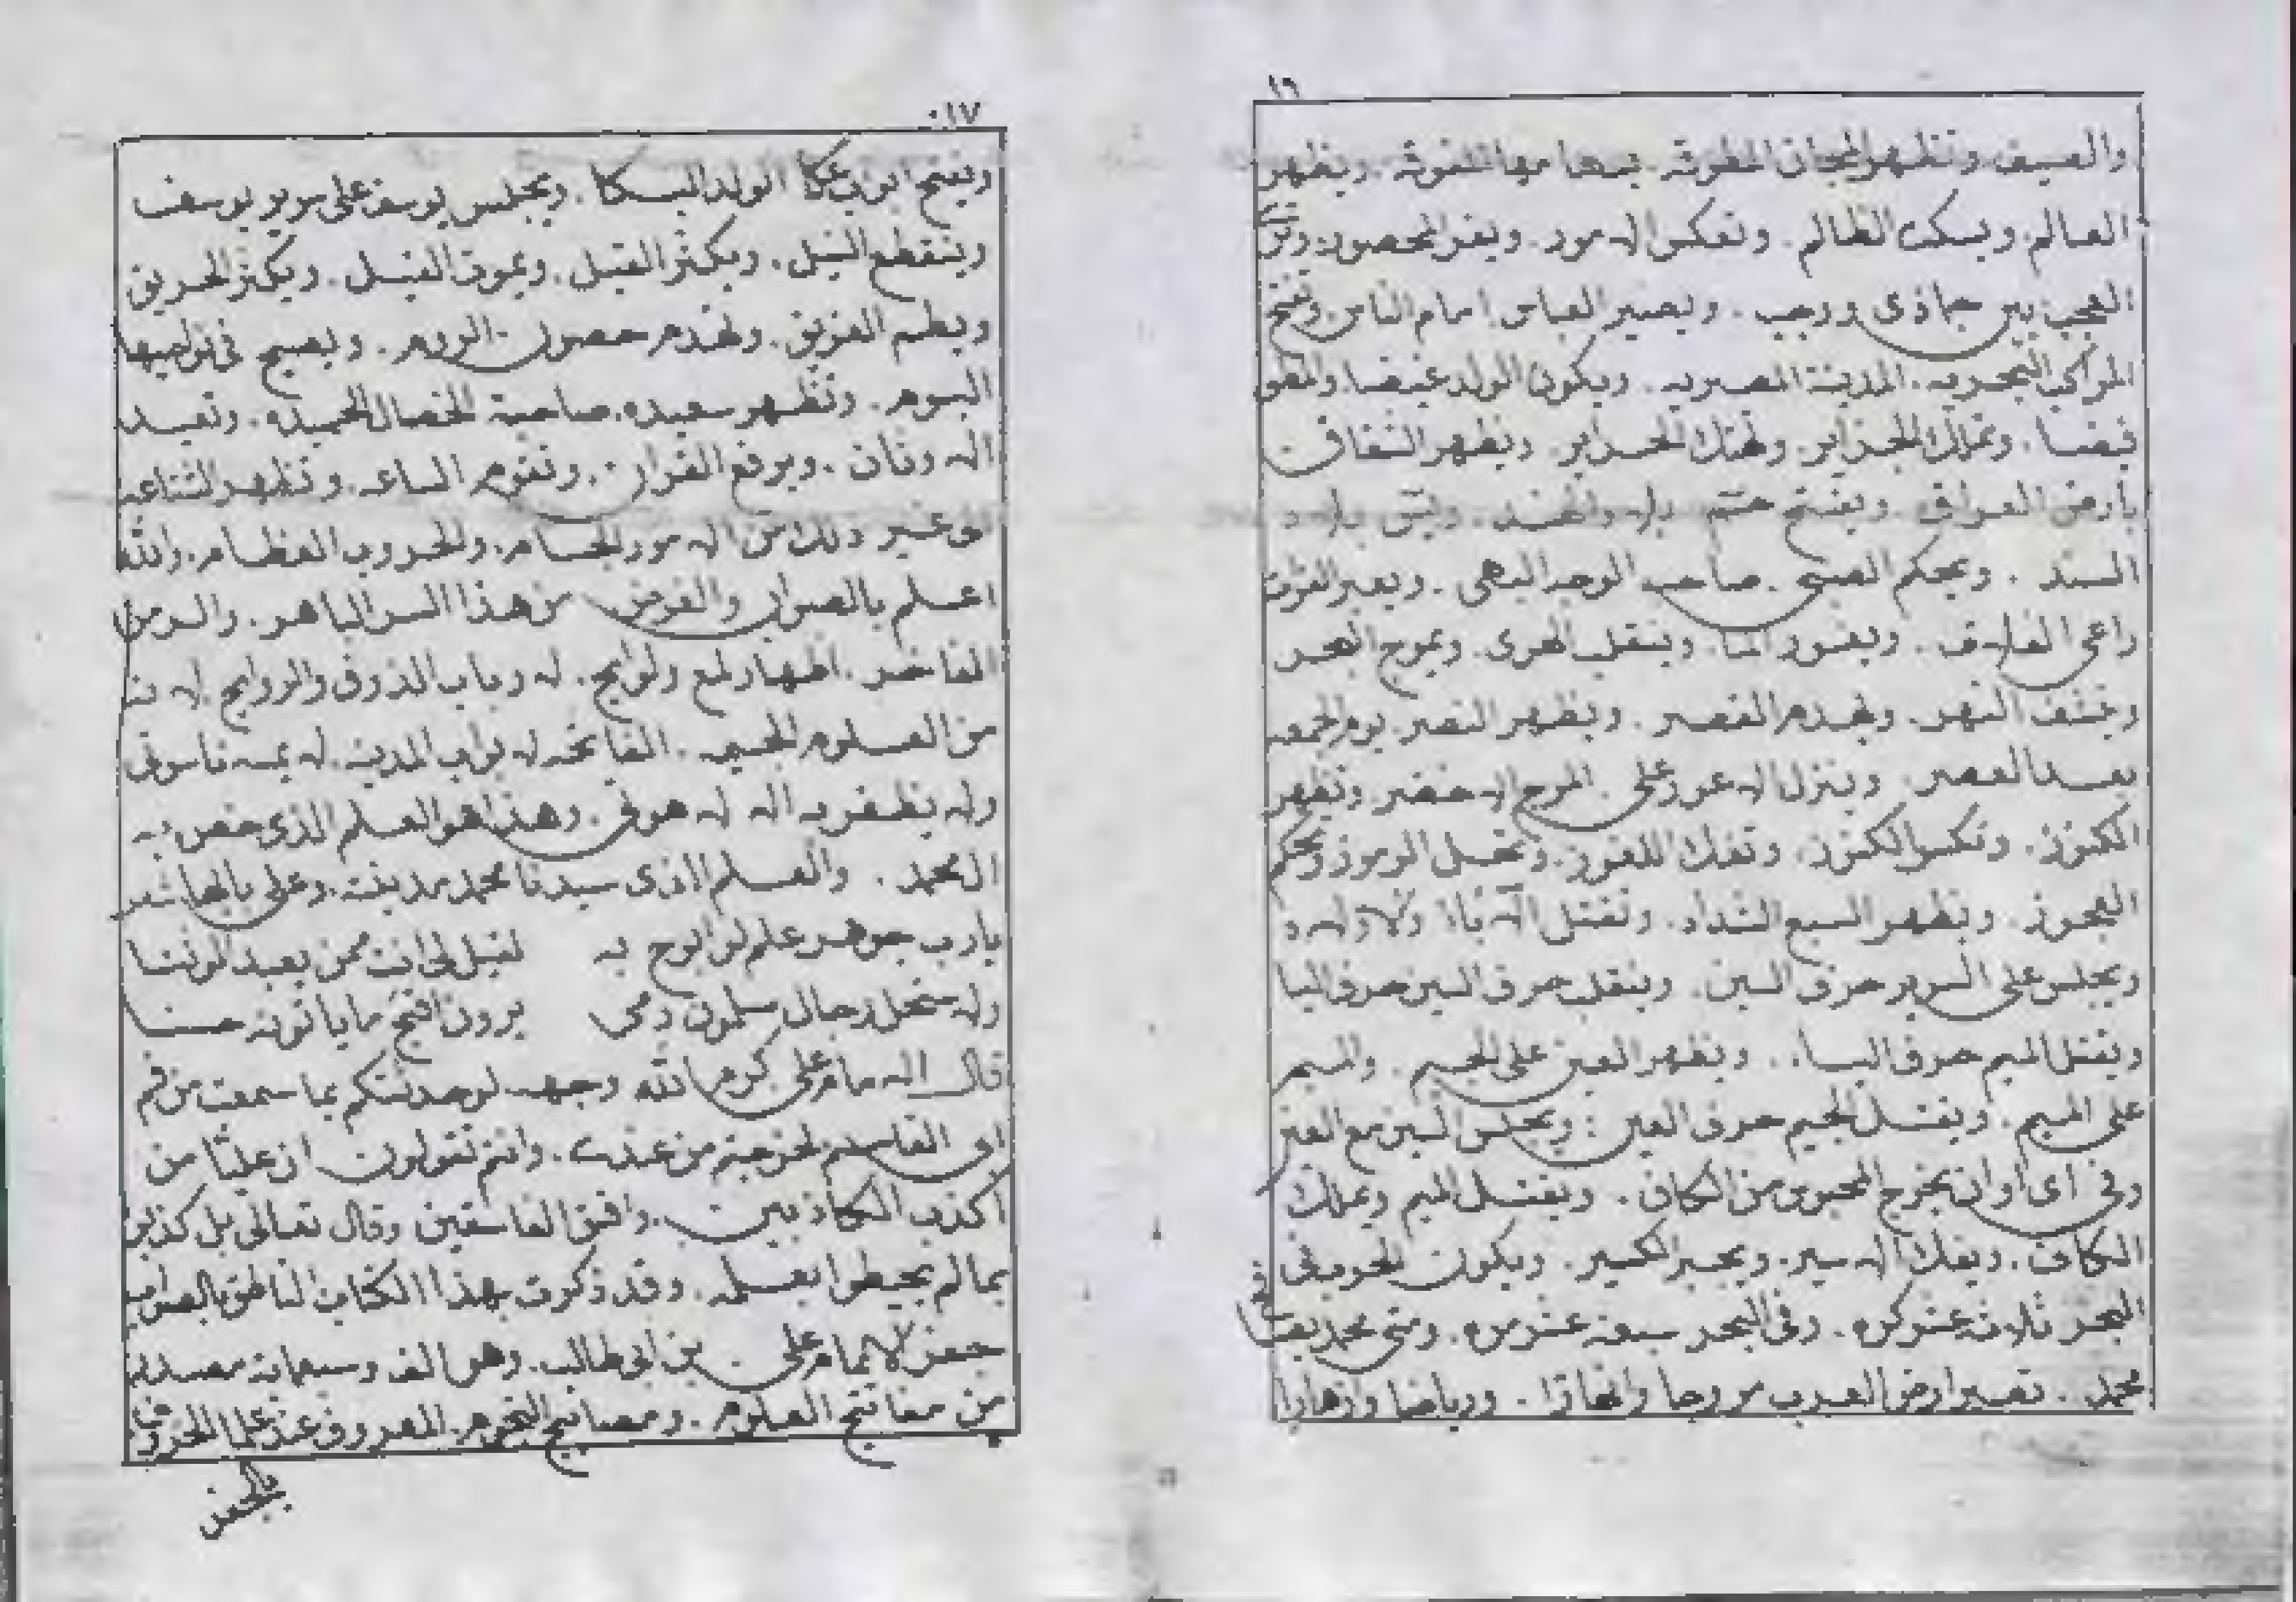 ١٦
والصيف. وتظهر المجان المطرقة. ويظهر
العالم. ويسكت الظالم. وتعكس الامور. ويفر المحصور.
العجب بين جماذى ورجب. ويصير العباس امام الناس. وتفتح
المراكب البحريه. المدينة المصريه. ويكون الولد غيضا. والمطر
قيضا. وتملك الجزاير. وتهتك الحراير. ويظهر الشقاق
بارض العراق. ويفتح بلاد الهند. بلاد
السند. ويحكم الصبى. صاحب الوجه البهى. ويعبر الفرات
راعى. ويغور الما. وينقلب الهوى. ويموج البحر
وينشف النهر. ويهدم القصر. ويظهر النصر. يوم الجمعه
بعد العصر. وينزل الاعور على المرج الاخضر. وتظهر
الكنوز. وتكسر الكنوز. وتفك اللغوز. وتحل الرموز. وتحكم
العجوز. وتظهر السبع الشداد. وتقتل الآباء والاولاد
ويجلس على السرير حرف السين. وينقلب حرف السين حرف اليا
ويقتل الميم حرف اليا. ويظهر العين على الجيم. والميم
على الميم. ويقتل الجيم حرف العين: ويجلس السين مع العين
وفى اى اوان يخرج المحبوس من الكاف. ويقتل الميم ويملك
الكاف. ويفك الاسير. ويجبر الكسير. ويكون الحرب فى
البحر ثلاثة عشر كره. وفى البحر سبعة عشر مره. ومتى محمد
محمد. تصير ارض العرب مروجا وانهارا. ورياضا وازهارا
١٧
ويفتح ابواب عكا الولد البكا. ويجلس يوسف على سرير يوسف
وينقطع النيل. ويكثر القيل. ويموت الفيل. ويكثر الحريق
ويطم الغريق. وتهدم حصون الروم. ويصيح فى نواحيها
البوم. وتظهر سعيده. صاحبة الخصال الحميده. وتعبد
الاوثان. ويرفع القران. وتقوم الساعه. وتظهر الشناعه
الى غير ذلك من الامور الجسام. والحروب العظام. والله
اعلم بالصواب والغرض من هذا السر الباهر. والرمز
الفاخر. اظهار لمع ولوايح. لارباب الذوق والروايح. لانها
من العلوم. الفاتحه لابواب المدينه. لا يمسه ناسوتى
ولا يظفر به الا لاهوتى. وهذا هو العلم الذى خص به
ال محمد. والعلم الذى سيدنا محمد مدينته. وعلى بابها شعر
يارب جوهر علم لو ابوح به لقيل لى انت ممن يعبد الوثنا
ولاستحل رجال مسلمون دمى يرون اقبح ما ياتونه حسنا
قال الامام على كرم الله وجهه لو حدثتكم بما سمعت من فم
ابى القاسم لخرجتم من عندى. وانتم تقولون ان عليا من
اكذب الكاذبين. وافسق الفاسقين وقال تعالى بل كذبوا
بما لم يحيطوا بعلمه. وقد ذكرت بهذا الكتاب الناطق بالصواب
جفر الامام على بن ابى طالب. وهو الف وسبعمائة مصدر
من مفاتيح العلوم. ومصابيح النجوم. المعروف عند علما الحروف
بالجفر